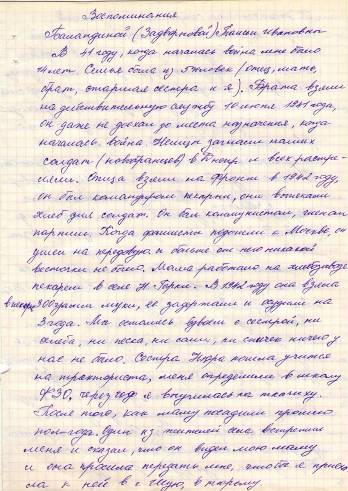 Воспоминания
Баландиной (Задворновой) Таисьи Ивановны
В 41 году, когда началась война мне было
14 лет. Семья была из 5 человек (отец, мать,
брат, старшая сестра и я). Брата взяли
на действительную службу 10 июня 1941 года,
он даже не доехал до места назначения, когда
началась война. Немцы загнали наших
солдат (новобранцев) в Днепр и всех расстре-
ляли. Отца взяли на фронт в 1942 году,
он был командиром пекарни, они выпекали
хлеб для солдат. Он был коммунистом, членом
партии. Когда фашисты подошли к Москве, он
ушел на передовую и больше от него никакой
весточки не было. Мама работала на
пекарем в селе Н. В 1942 году она взяла
в пекарне 300 грамм муки, её задержали и осудили на
3 года. Мы остались вдвоем с сестрой, ни
хлеба, ни мяса, ни соли, ни спичек ничего у
нас не было. Сестра Нюра пошла учиться
на тракториста, меня определили в школу
ФЗО, через год я выучилась на ткачиху.
После того, как маму посадили прошло
полгода. Один из жителей села встретил
меня и сказал, что он видел мою маму
и она просила передать мне, чтобы я приеха-
ла к ней в г. в тюрьму